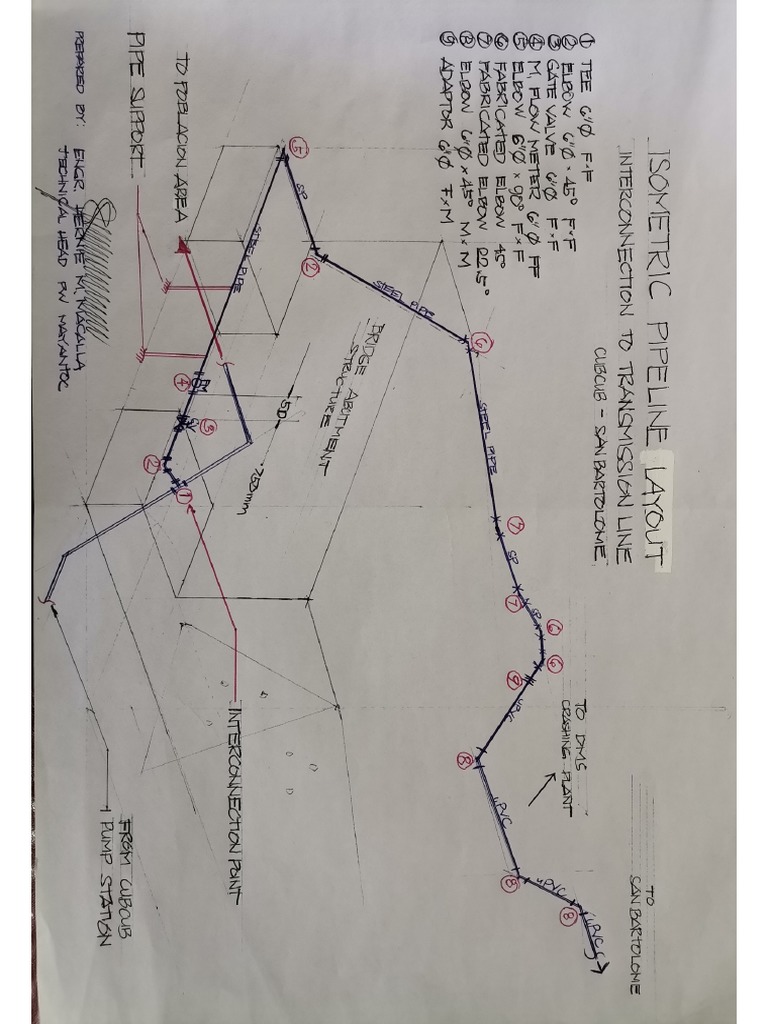 ISOMETRIC PIPELINE LAYOUT
INTERCONNECTION TO TRANSMISSION LINE
CUBCUB - SAN BARTOLOME
① TEE 6"Ø F×F
② ELBOW 6"Ø × 45° F×F
③ GATE VALVE 6"Ø F×F
④ M. FLOW METER 6"Ø FF
⑤ ELBOW 6"Ø × 90° F×F
⑥ FABRICATED ELBOW 45°
⑦ FABRICATED ELBOW 22.5°
⑧ ELBOW 6"Ø × 45° M×M
⑨ ADAPTOR 6"Ø F×M
TO
SAN BARTOLOME
TO DMS
CRASHING PLANT
⑥
STEEL PIPE
⑦
SP
⑦
SP
⑥
⑥
⑨
uPVC
⑧
uPVC
⑧
uPVC
⑧
uPVC
②
STEEL PIPE
⑤
SP
STEEL PIPE
BRIDGE ABUTMENT
STRUCTURE
5D
750mm
④
FM
③
GV
②
①
TO POBLACION AREA
PIPE SUPPORT
INTERCONNECTION POINT
FROM CUBCUB
PUMP STATION
PREPARED BY: ENGR. HERNIE M. MACALLA
TECHNICAL HEAD PW MAYANTOC